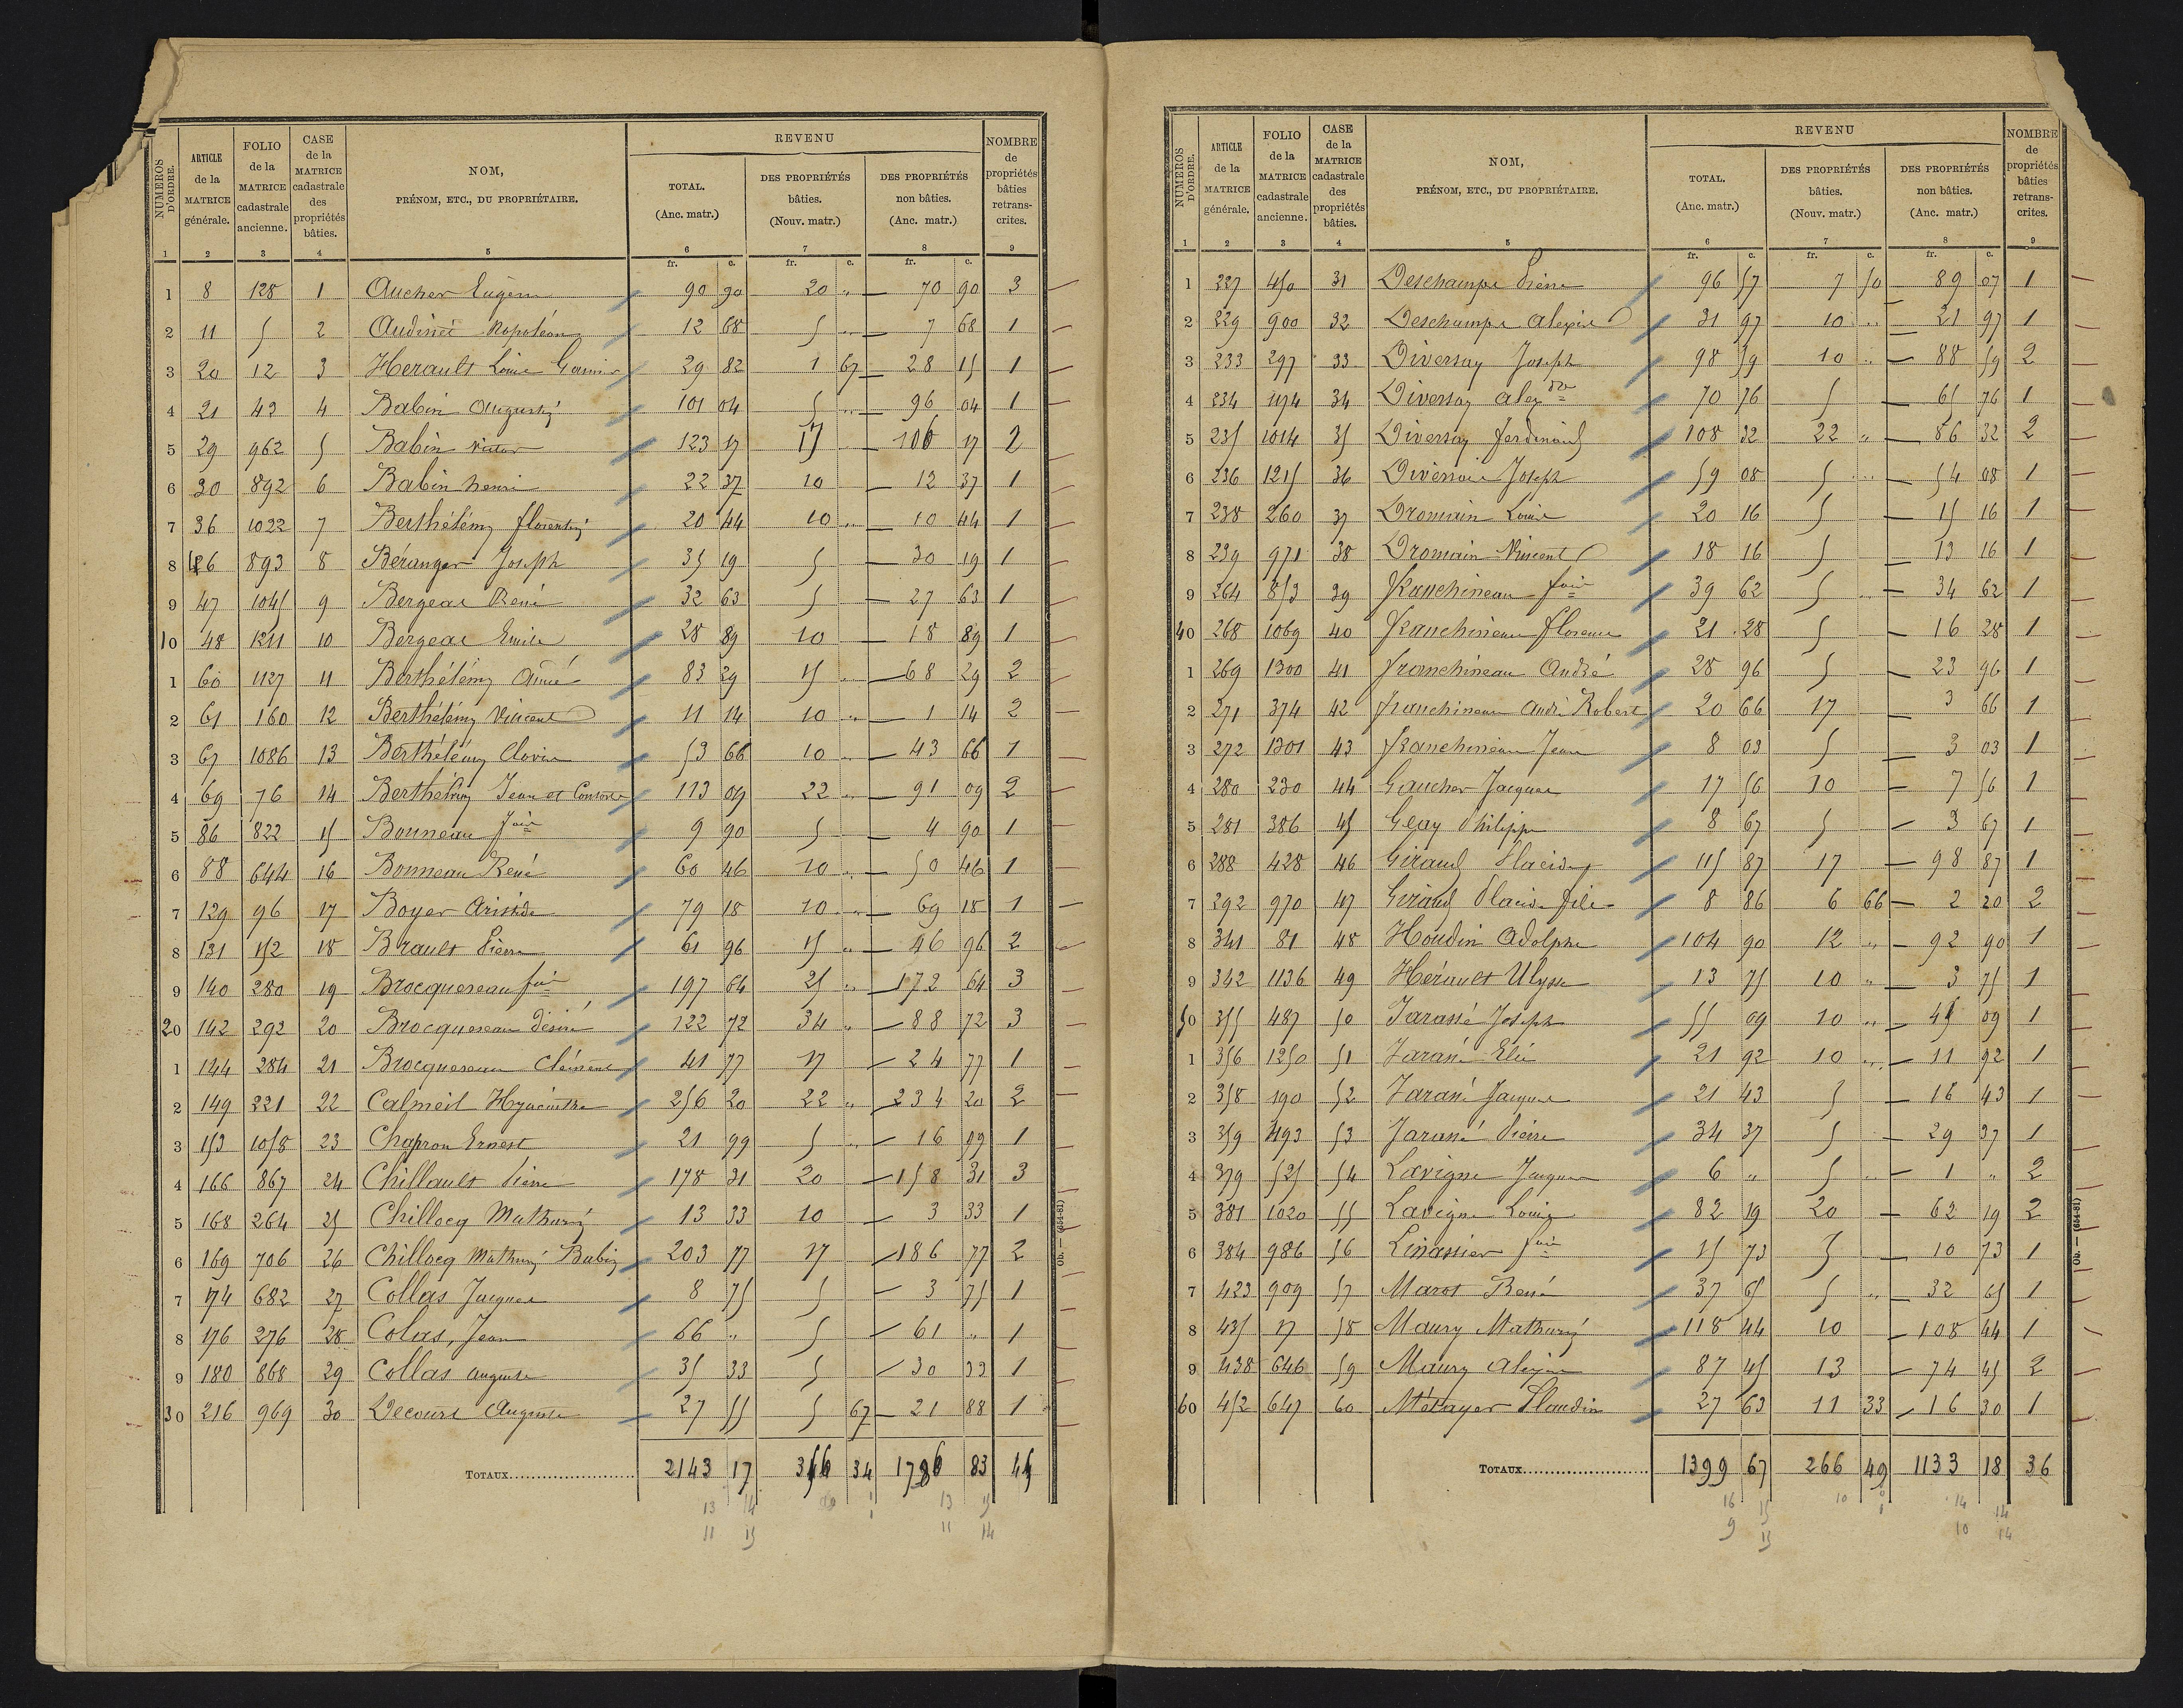 NUMÉROS D'ORDRE. ARTICLE de la MATRICE générale. FOLIO de la MATRICE cadastrale ancienne. CASE de la MATRICE cadastrale des propriétés bâties. NOM, PRÉNOM, ETC., DU PROPRIÉTAIRE. REVENU TOTAL. (Anc. matr.) DES PROPRIÉTÉS bâties. (Nouv. matr.) DES PROPRIÉTÉS non bâties. (Anc. matr.) NOMBRE de propriétés bâties retranscrites.
1 2 3 4 5 6 7 8 9
fr. c. fr. c. fr. c.
1 8 128 1 Aucher Eugène 90 90 20 " 70 90 3
2 11 5 2 Audinet Napoléon 12 68 5 " 7 68 1
3 20 12 3 Herault Louis Garnier 29 82 1 67 28 15 1
4 21 42 4 Babin Augustin 101 04 5 " 96 04 1
5 29 962 5 Babin Victor 123 17 17 106 17 2
6 30 892 6 Babin henri 22 37 10 12 37 1
7 36 1022 7 Berthélémy florentin 20 44 10 " 10 44 1
8 46 893 8 Béranger Joseph 35 19 5 30 19 1
9 47 1045 9 Bergeas René 32 63 5 27 63 1
10 48 1211 10 Bergeas Emile 28 89 10 18 89 1
1 60 1127 11 Berthélémy Aimé 83 29 15 68 29 2
2 61 160 12 Berthélémy Vincent 11 14 10 " 1 14 2
3 67 1086 13 Berthélémy Clovis 53 66 10 " 43 66 1
4 69 76 14 Berthélémy Jean et Consorts 113 09 22 " 91 09 2
5 86 822 15 Bonneau 9 90 5 4 90 1
6 88 644 16 Bonneau René 60 46 10 " 50 46 1
7 129 96 17 Boyer Aristide 79 18 10 " 69 18 1
8 131 152 18 Brault Pierre 61 96 15 " 46 96 2
9 140 280 19 Brocquereau 197 64 25 " 172 64 3
20 142 292 20 Brocquereau Désiré 122 72 34 " 88 72 3
1 144 284 21 Brocquereau Clément 41 77 17 24 77 1
2 149 221 22 Calmeil Hyacinthe 256 20 22 " 234 20 2
3 153 1058 23 Chapron Ernest 21 99 5 " 16 99 1
4 166 867 24 Chillault Pierre 178 31 20 158 31 3
5 168 264 25 Chillocq Mathurin 13 33 10 3 33 1
6 169 706 26 Chillocq Mathurin Babin 203 77 17 186 77 2
7 174 682 27 Collas Jacques 8 75 5 3 75 1
8 176 276 28 Colas, Jean 66 " 5 61 " 1
9 180 868 29 Collas auguste 35 33 5 30 33 1
30 216 969 30 Decourt Auguste 27 55 5 67 21 88 1
TOTAUX 2143 17 356 34 1786 83 45
13 14 1 13 15
11 15 1 11 14
Ob. — (654-81)
NUMÉROS D'ORDRE. ARTICLE de la MATRICE générale. FOLIO de la MATRICE cadastrale ancienne. CASE de la MATRICE cadastrale des propriétés bâties. NOM, PRÉNOM, ETC., DU PROPRIÉTAIRE. REVENU TOTAL. (Anc. matr.) DES PROPRIÉTÉS bâties. (Nouv. matr.) DES PROPRIÉTÉS non bâties. (Anc. matr.) NOMBRE de propriétés bâties retranscrites.
1 2 3 4 5 6 7 8 9
fr. c. fr. c. fr. c.
1 227 450 31 Deschamps Pierre 96 57 7 50 89 07 1
2 229 900 32 Deschamps Alexis 31 97 10 " 21 97 1
3 233 297 33 Diversay Joseph 98 59 10 " 88 59 2
4 234 1174 34 Diversay Alexdre 70 76 5 65 76 1
5 235 1014 35 Diversay ferdinand 108 32 22 " 86 32 2
6 236 1215 36 Diversais Joseph 59 08 5 " 54 08 1
7 238 260 37 Dromain Louis 20 16 5 15 16 1
8 239 971 38 Dromain Vincent 18 16 5 13 16 1
9 264 853 39 franchineau 39 62 5 " 34 62 1
40 268 1069 40 franchineau florence 21 28 5 16 28 1
1 269 1300 41 franchineau André 28 96 5 23 96 1
2 271 374 42 franchineau André Robert 20 66 17 3 66 1
3 272 1301 43 franchineau Jean 8 03 5 3 03 1
4 280 230 44 Gaucher Jacques 17 56 10 7 56 1
5 281 386 45 Geay Philippe 8 67 5 3 67 1
6 288 428 46 Giraud Placide 115 87 17 98 87 1
7 292 970 47 Giraud Placide fils 8 86 6 66 2 20 2
8 341 81 48 Houdin Adolphe 104 90 12 " 92 90 1
9 342 1136 49 Hérault Ulysse 13 75 10 " 3 75 1
50 355 487 50 Jarassé Joseph 55 09 10 " 45 09 1
1 356 1250 51 Jarassé Elie 21 92 10 " 11 92 1
2 358 190 52 Jarassé Jacques 21 43 5 16 43 1
3 359 493 53 Jarassé Pierre 34 37 5 29 37 1
4 379 525 54 Lavigne Jacques 6 " 5 " 1 " 2
5 381 1020 55 Lavigne Louis 82 19 20 62 19 2
6 384 986 56 Linassier 15 73 5 10 73 1
7 423 909 57 Marot René 37 65 5 " 32 65 1
8 435 17 58 Maury Mathurin 118 44 10 108 44 1
9 438 646 59 Maury Alexis 87 45 13 74 45 2
60 452 647 60 Métayer Plaudin 27 63 11 33 16 30 1
TOTAUX 1399 67 266 49 1133 18 36
16 15 10 14 14
9 15 1 10 14
Ob. — (654-81)